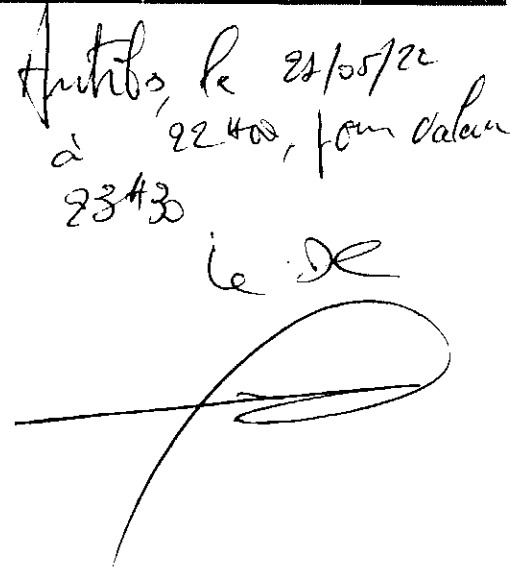 Antibes, le 21/05/22
à 22H00, pour valoir
23H30
Le DC